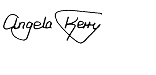 Angela Kerry